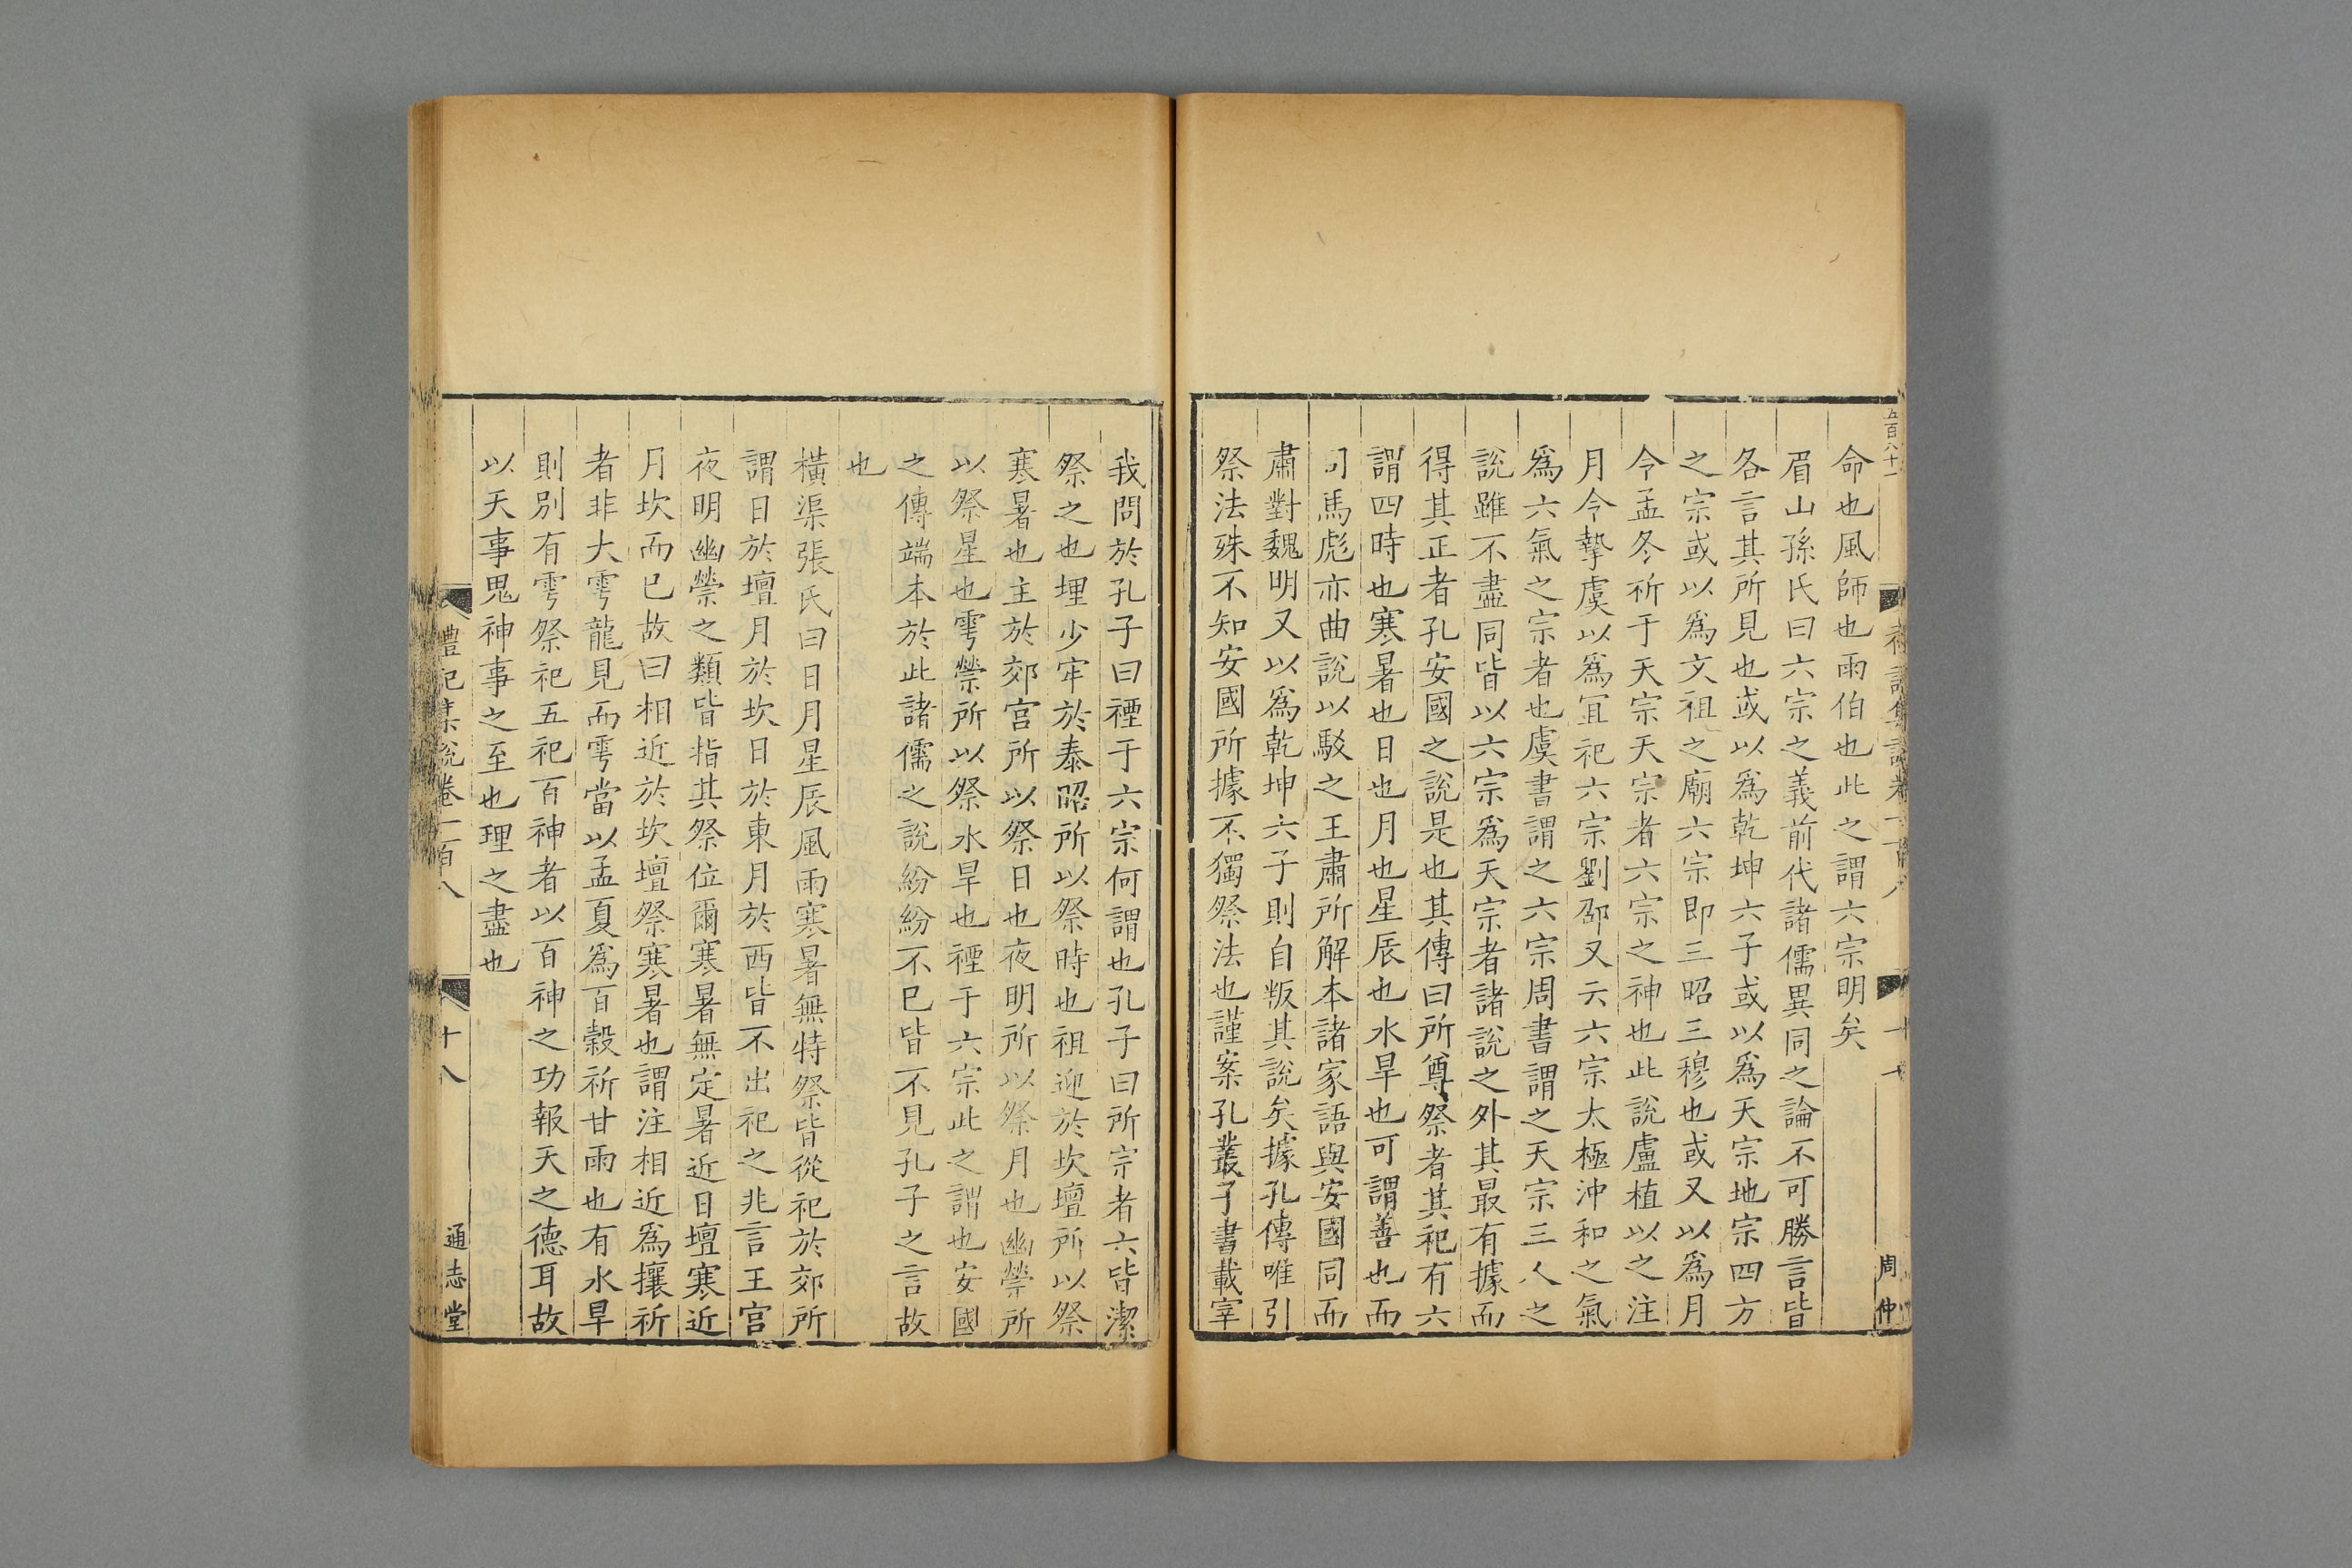 五百八十一
命也風師也雨伯也此之謂六宗明矣
眉山孫氏曰六宗之義前代諸儒異同之論不可勝言皆
各言其所見也或以爲乾坤六子或以爲天宗地宗四方
之宗或以爲文祖之廟六宗即三昭三穆也或又以爲月
令孟冬祈于天宗天宗者六宗之神也此說盧植以之注
月令摯虞以爲宜祀六宗劉邵又云六宗太極沖和之氣
爲六氣之宗者也虞書謂之六宗周書謂之天宗三人之
說雖不盡同皆以六宗爲天宗者諸說之外其最有據而
得其正者孔安國之說是也其傳曰所尊祭者其祀有六
謂四時也寒暑也日也月也星辰也水旱也可謂善也而
司馬彪亦曲說以駁之王肅所解本諸家語與安國同而
肅對魏明又以爲乾坤六子則自叛其說矣據孔傳唯引
祭法殊不知安國所據不獨祭法也謹案孔叢子書載宰
周仲
我問於孔子曰禋于六宗何謂也孔子曰所宗者六皆潔
祭之也埋少牢於泰昭所以祭時也祖迎於坎壇所以祭
寒暑也主於郊宮所以祭日也夜明所以祭月也幽禜所
以祭星也雩禜所以祭水旱也禋于六宗此之謂也安國
之傳端本於此諸儒之說紛紛不已皆不見孔子之言故
也
橫渠張氏曰日月星辰風雨寒暑無特祭皆從祀於郊所
謂日於壇月於坎日於東月於西皆不出祀之兆言王宮
夜明幽禜之類皆指其祭位爾寒暑無定暑近日壇寒近
月坎而已故曰相近於坎壇祭寒暑也謂注相近爲攘祈
者非大雩龍見而雩當以孟夏爲百穀祈甘雨也有水旱
則別有雩祭祀五祀百神者以百神之功報天之德耳故
以天事鬼神事之至也理之盡也
禮記集說卷一百八
十八
通志堂